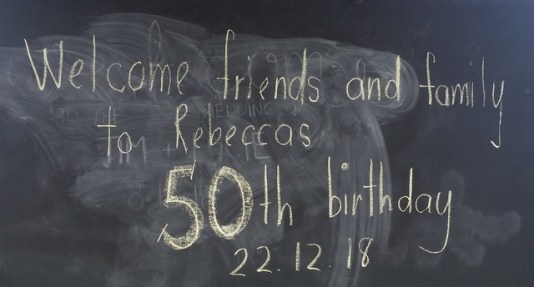 Welcome friends and family
to Rebecca's
50th birthday
22.12.18